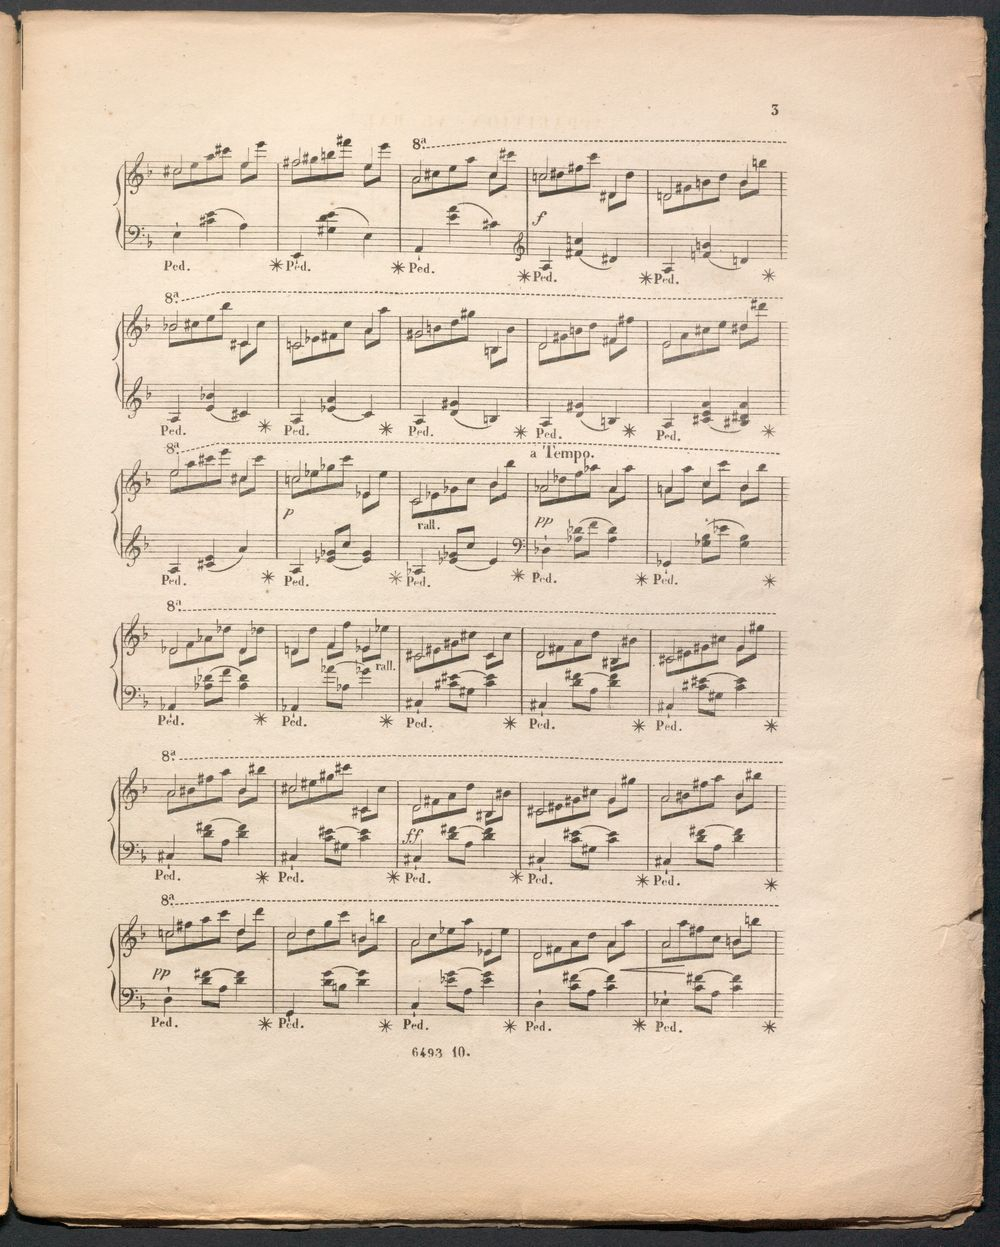 3
8ª
f
Ped. * Ped. * Ped. * Ped. * Ped. *
8ª
Ped. * Ped. * Ped. * Ped. * Ped. *
8ª
a Tempo.
p rall. pp
Ped. * Ped. * Ped. * Ped. * Ped. *
8ª
rall.
Ped. * Ped. * Ped. * Ped. * Ped. *
8ª
ff
Ped. * Ped. * Ped. * Ped. * Ped. *
8ª
pp
Ped. * Ped. * Ped. * Ped. * Ped. *
6493 10.